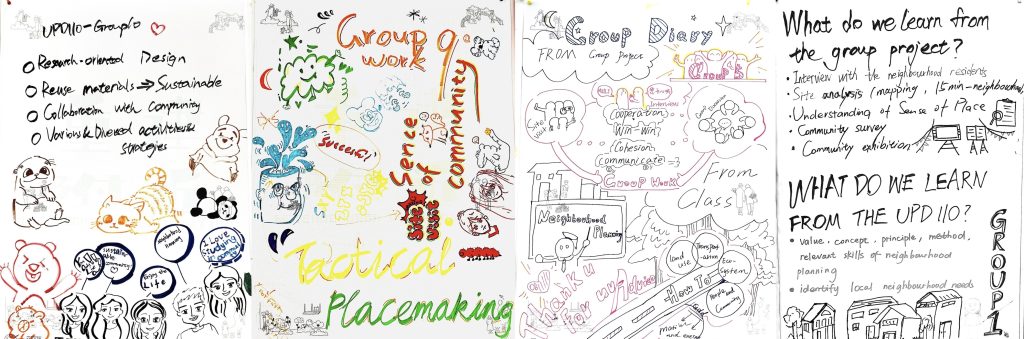 UPD110-Group10
Research-oriented Design
Reuse materials → Sustainable
Collaboration with Community
Various & Diversed activities
strategies
neighborhood planning
Enjoy the Life
I Love Studying
Group 9
work
Success!
Sence of community
Site visit
Tactical
Placemaking
Group Diary
FROM Group Project
Group 5
Site Visit
Interview
Cooperation
Win-Win?
Cohesion
Communicate
Group Work
From Class
Neighbourhood Planning
Land use
Transport
Eco-system
How To
People Community
Thank u
For ur Advice
What do we learn from
the group project?
• Interview with the neighbourhood residents
• Site analysis (mapping, 15min-neighbourhood)
• Understanding of Sense of Place
• Community survey
• Community exhibition
WHAT DO WE LEARN
FROM THE UPD 110?
• value, concept, principle, method,
relevant skills of neighbourhood
planning
• identify local neighbourhood needs
GROUP 1